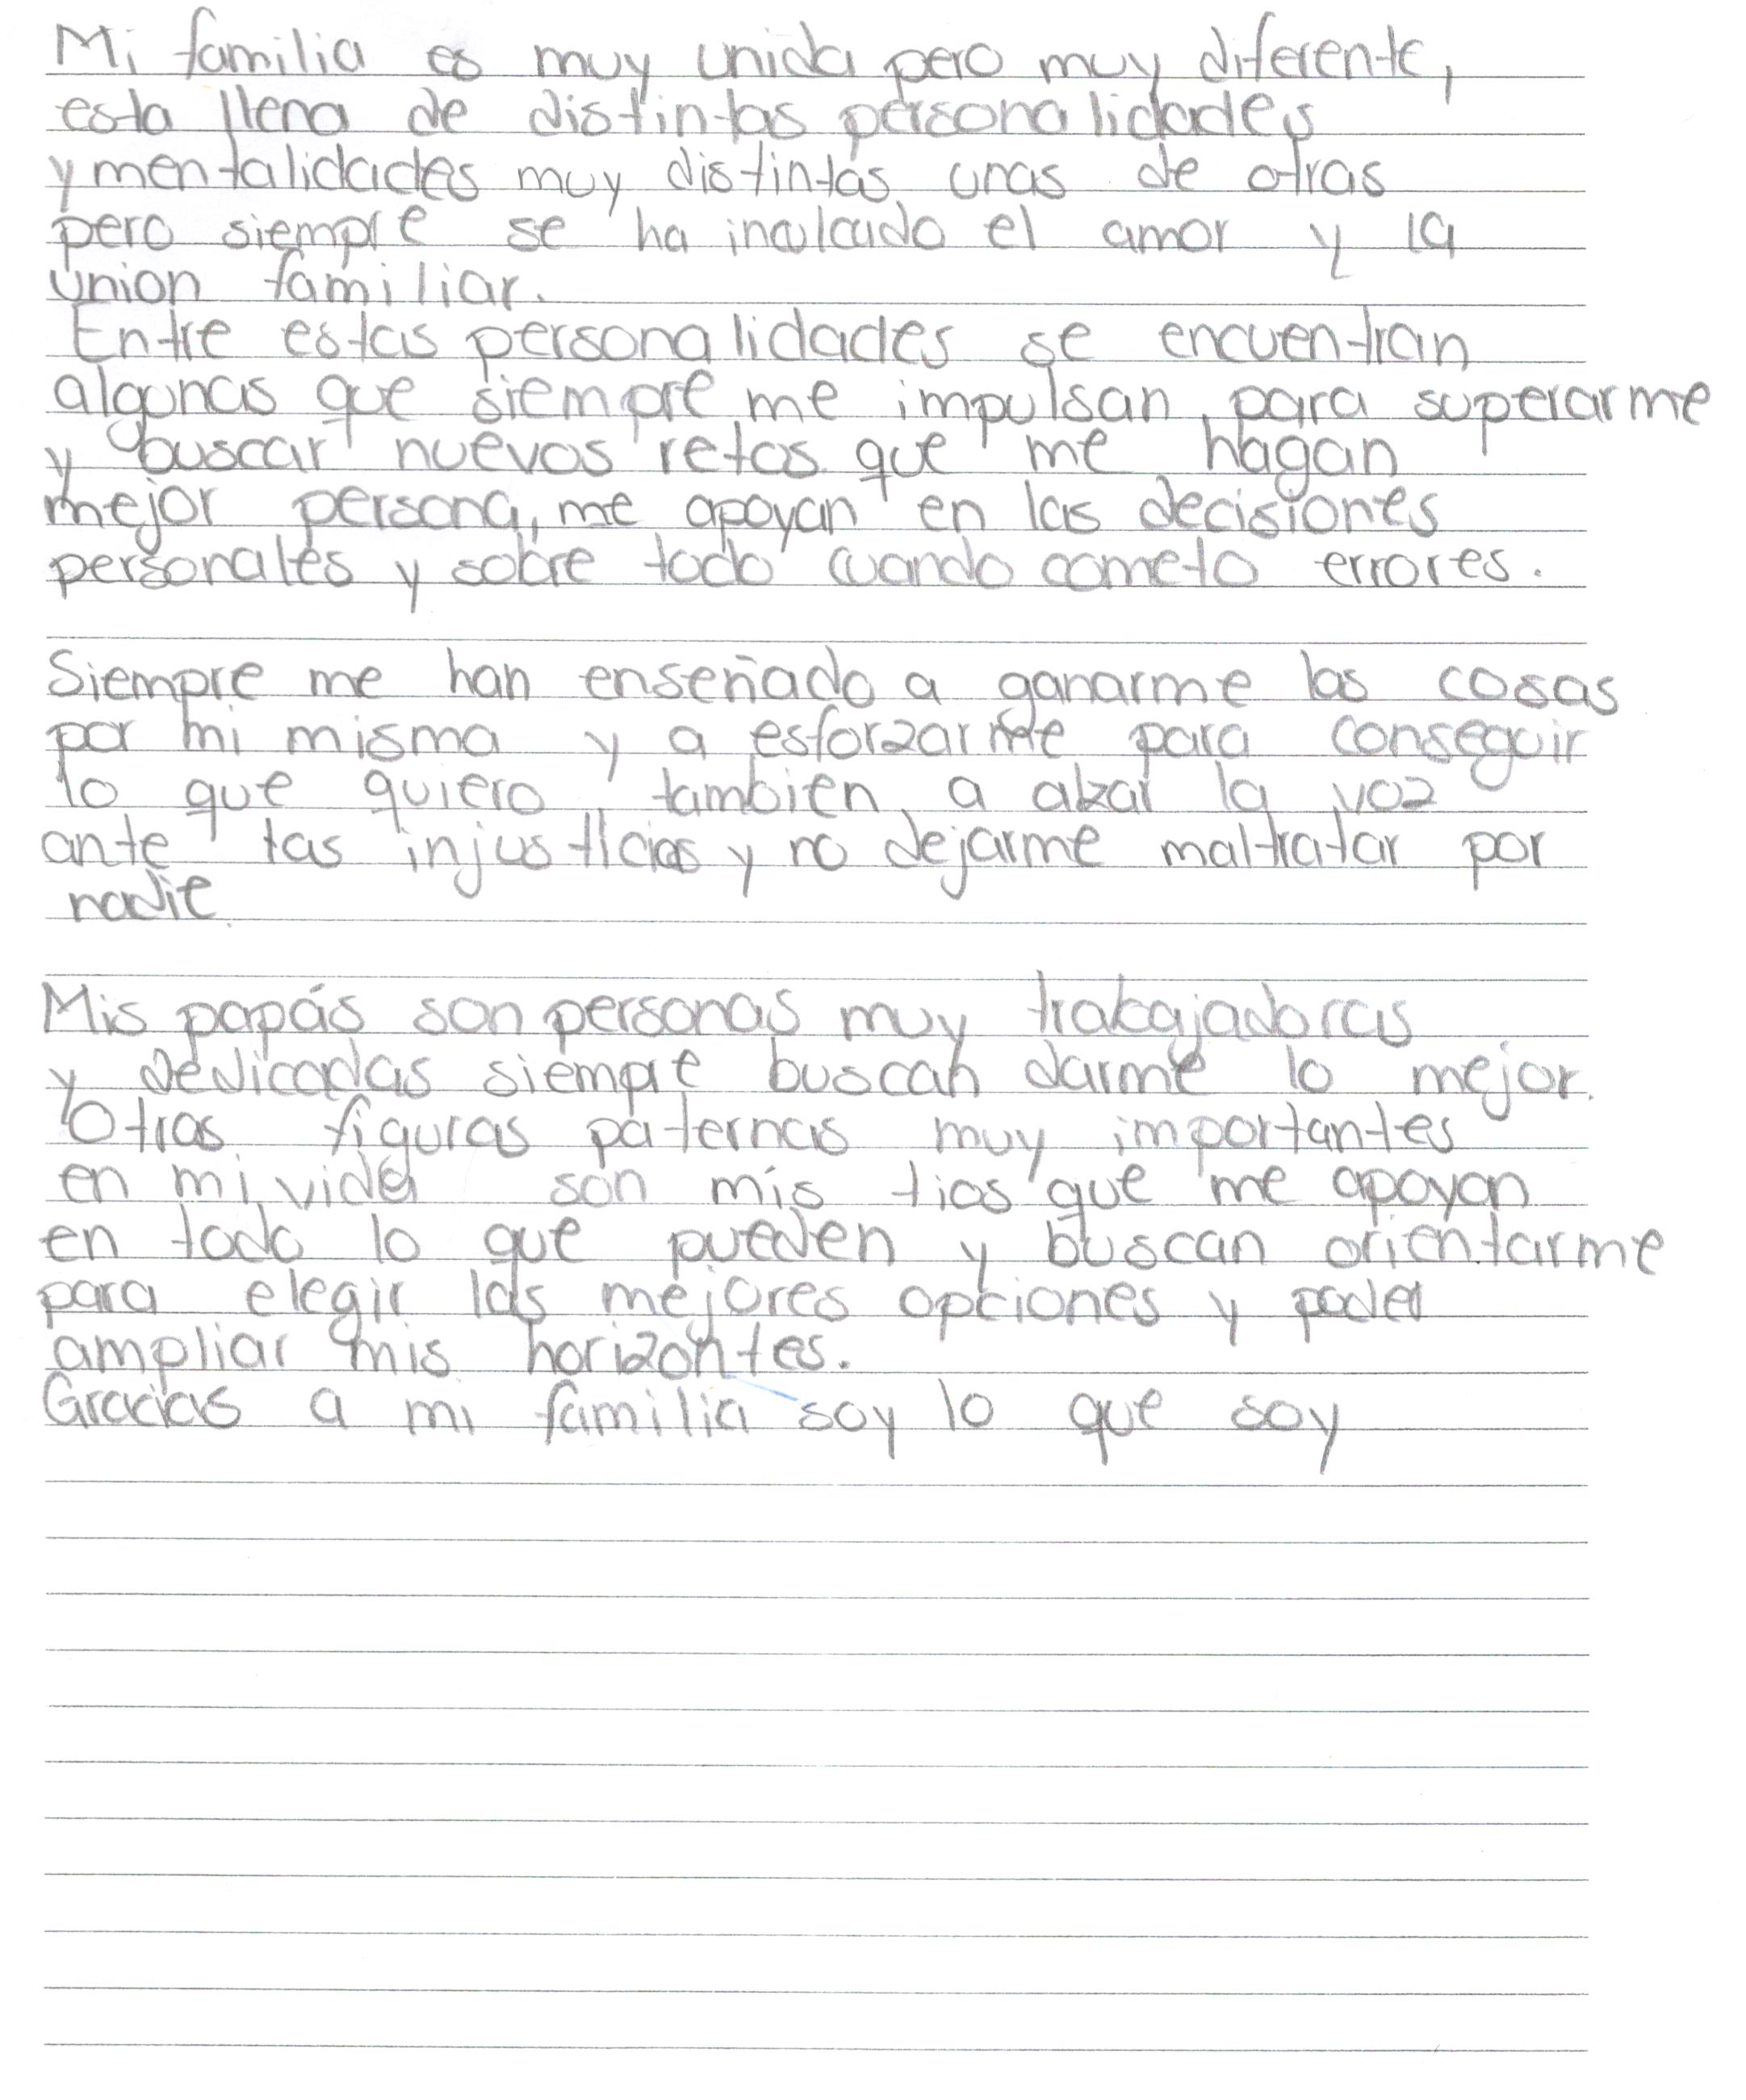 Mi familia es muy unida pero muy diferente,
esta llena de distintas personalidades
y mentalidades muy distintas unas de otras
pero siempre se ha inculcado el amor y la
union familiar.
Entre estas personalidades se encuentran
algunas que siempre me impulsan para superarme
y buscar nuevos retos que me hagan
mejor persona, me apoyan en las decisiones
personales y sobre todo cuando cometo errores.
Siempre me han enseñado a ganarme las cosas
por mi misma y a esforzarme para conseguir
lo que quiero, tambien a alzar la voz
ante las injusticias y no dejarme maltratar por
nadie.
Mis papás son personas muy trabajadoras
y dedicadas siempre buscan darme lo mejor.
Otras figuras paternas muy importantes
en mi vida son mis tios que me apoyan
en todo lo que pueden y buscan orientarme
para elegir las mejores opciones y poder
ampliar mis horizontes.
Gracias a mi familia soy lo que soy